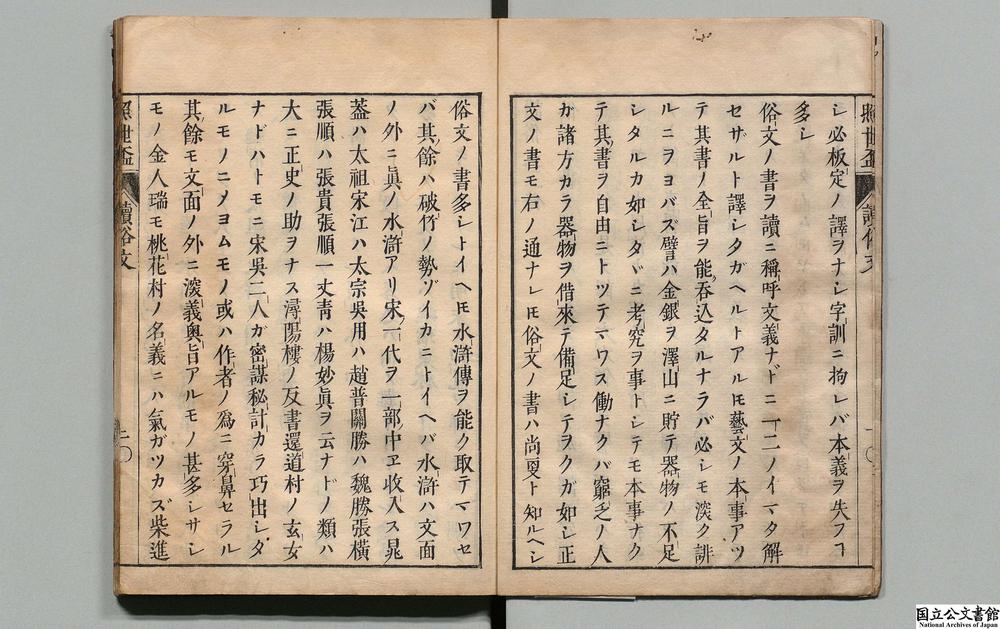 シ必板定ノ譯ヲナシ字訓ニ拘レバ本義ヲ失フヿ
多シ
俗文ノ書ヲ讀ニ稱呼文義ナドニ一二ノイマタ解
セザルト譯シタガヘルトアルㇳモ藝文ノ本事アツ
テ其書ノ全旨ヲ能呑込タルナラバ必シモ深ク誹
ルニヲヨバズ譬ハ金銀ヲ澤山ニ貯テ器物ノ不足
シタルカ如シタヾニ考究ヲ事トシテモ本事ナク
テ其書ヲ自由ニトツテマワス働ナクバ窮乏ノ人
ガ諸方カラ器物ヲ借來テ備足シテヲクガ如シ正
文ノ書モ右ノ通ナレㇳモ俗文ノ書ハ尚更ト知ルヘシ
照世盃
讀俗文
一〇
俗文ノ書多シトイヘㇳモ水滸傳ヲ能ク取テマワセ
バ其餘ハ破竹ノ勢ゾイカニトイヘバ水滸ハ文面
ノ外ニ眞ノ水滸アリ宋一代ヲ一部中ヱ收入ス晁
葢ハ太祖宋江ハ太宗吳用ハ趙普關勝ハ魏勝張橫
張順ハ張貴張順一丈靑ハ楊妙眞ヲ云ナドノ類ハ
大ニ正史ノ助ヲナス潯陽樓ノ反書還道村ノ玄女
ナドハトモニ宋吳二人ガ密謀秘計カラ巧出シタ
ルモノニメヨムモノ或ハ作者ノ爲ニ穿鼻セラル
其餘モ文面ノ外ニ深義奧旨アルモノ甚多シサシ
モノ金人瑞モ桃花村ノ名義ニハ氣ガツカズ柴進
照世盃
讀俗文
二〇
国立公文書館
National Archives of Japan